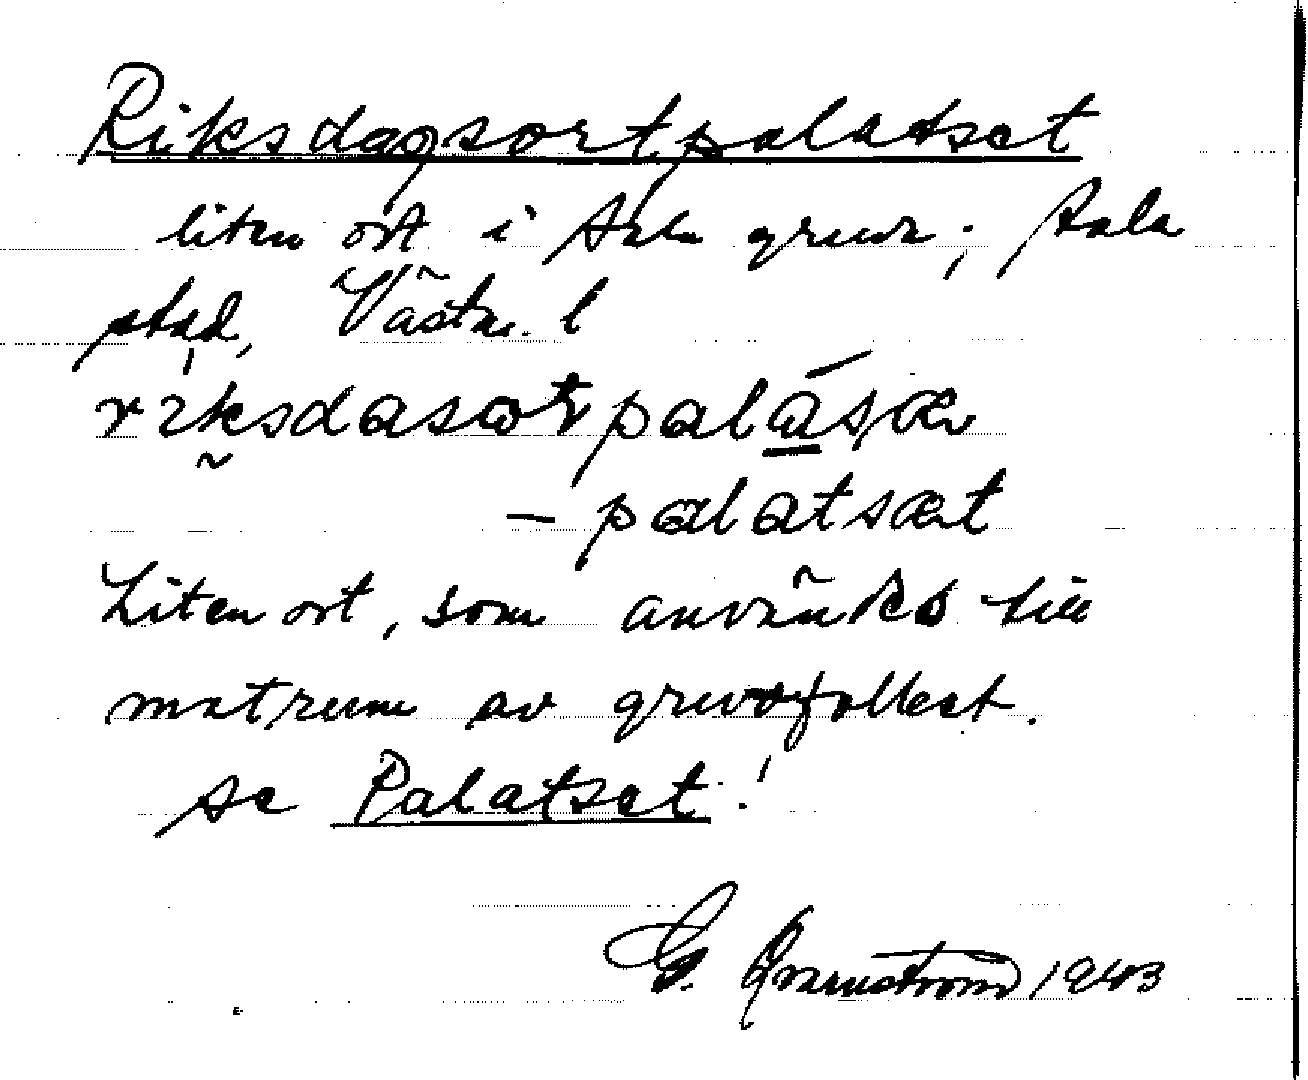 Riksdagsortpalatset
liten ort i Sala gruva; Sala
stad, Västm. l
riksdasortpalásæ
– palatsæt
Liten ort, som användes till
matrum av gruvfolket.
se Palatset!
G. Qvarnström 1943